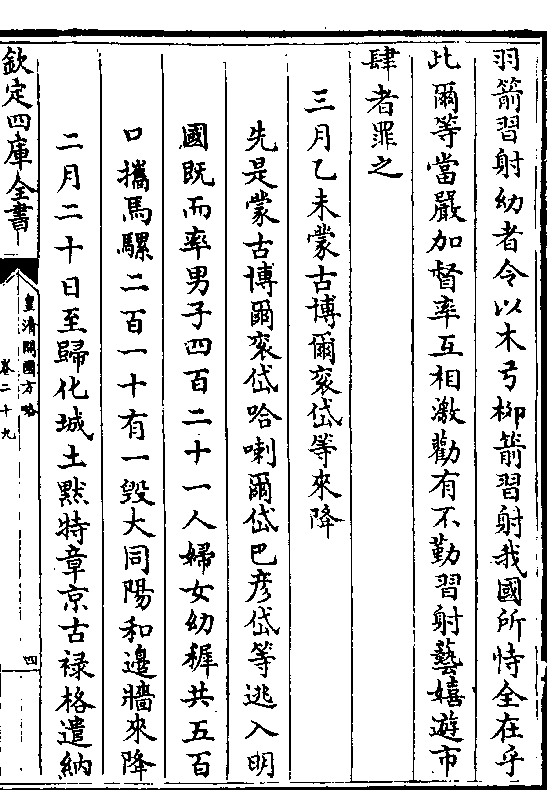 羽箭習射幼者令以木弓柳箭習射我國所恃全在乎
此爾等當嚴加督率互相激勸有不勤習射藝嬉遊市
肆者罪之
三月乙未蒙古博爾衮岱等來降
先是蒙古博爾衮岱哈喇爾岱巴彦岱等逃入明
國既而率男子四百二十一人婦女幼穉共五百
口攜馬騾二百一十有一毀大同陽和邊牆來降
二月二十日至歸化城土黙特章京古禄格遣納
欽定四庫全書
皇清開國方略
卷二十九
四